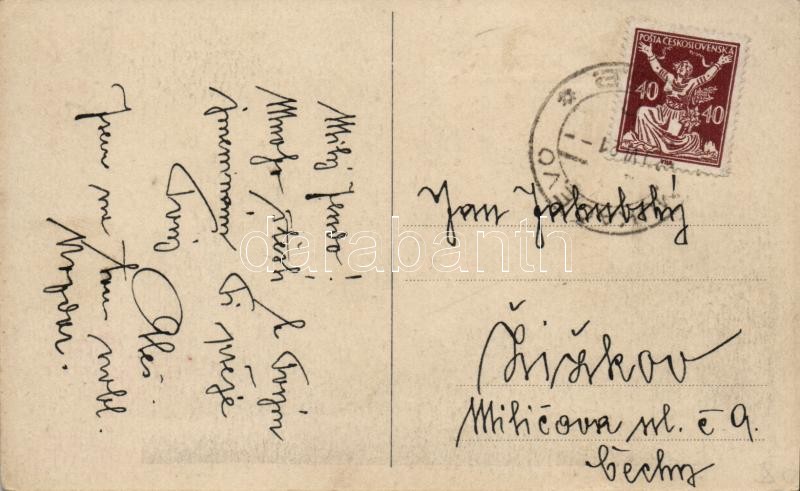 Milý Jendo!
Mnoho štěstí k Tvojim
jmeninam Ti přeje
Tvůj
Olěs.
Jsem na
POŠTA ČESKOSLOVENSKÁ
40 40
Jan Jakubský
Žižkov
Miličova ul. č 9.
Čechy
darabanth